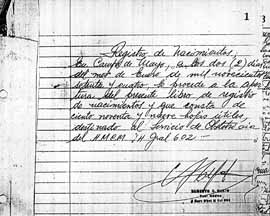 1
Registro de Nacimientos
En Campo de Mayo, a los dos (2) dias
del mes de Enero de mil novecientos
setenta y cuatro, se procede a la aper
tura del presente libro de registro
de nacimientos y que consta de
ciento noventa y nueve hojas útiles,
destinado al Servicio de
del H.M.C.M. "H Gral 602"-